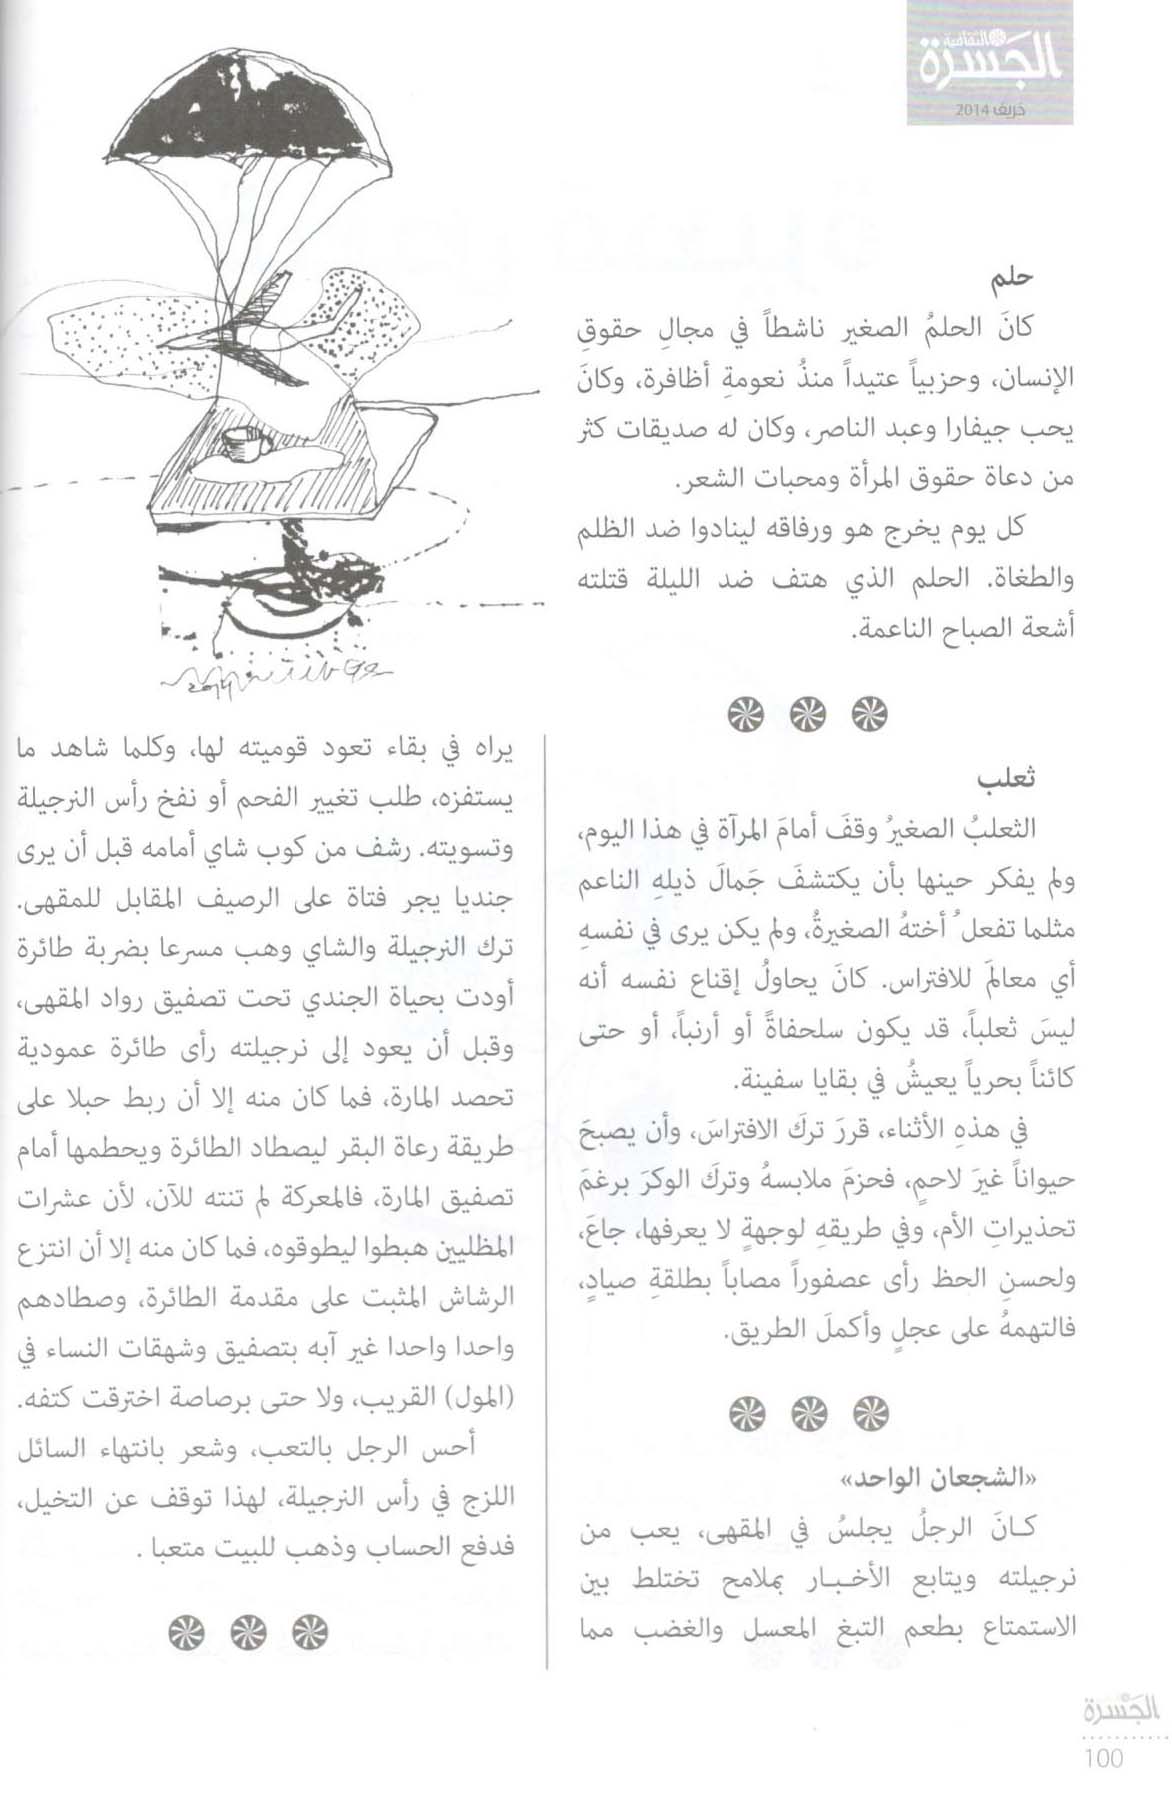 الثقافية
الجَسْرَة
خريف 2014
حلم
كانَ الحلمُ الصغير ناشطاً في مجالِ حقوقِ
الإنسان، وحزبياً عتيداً منذُ نعومةِ أظافرة، وكانَ
يحب جيفارا وعبد الناصر، وكان له صديقات كثر
من دعاة حقوق المرأة ومحبات الشعر.
كل يوم يخرج هو ورفاقه لينادوا ضد الظلم
والطغاة. الحلم الذي هتف ضد الليلة قتلته
أشعة الصباح الناعمة.
ثعلب
الثعلبُ الصغيرُ وقفَ أمامَ المرآة في هذا اليوم،
ولم يفكر حينها بأن يكتشفَ جَمالَ ذيلهِ الناعم
مثلما تفعلُ أختهُ الصغيرةُ، ولم يكن يرى في نفسهِ
أي معالمَ للافتراس. كانَ يحاولُ إقناع نفسه أنه
ليسَ ثعلباً، قد يكون سلحفاةً أو أرنباً، أو حتى
كائناً بحرياً يعيشُ في بقايا سفينة.
في هذهِ الأثناء، قررَ تركَ الافتراسَ، وأن يصبحَ
حيواناً غيرَ لاحمٍ، فحزمَ ملابسهُ وتركَ الوكرَ برغمَ
تحذيراتِ الأم، وفي طريقهِ لوجهةٍ لا يعرفها، جاعَ،
ولحسنِ الحظ رأى عصفوراً مصاباً بطلقةِ صيادٍ،
فالتهمهُ على عجلٍ وأكملَ الطريق.
«الشجعان الواحد»
كـانَ الرجلُ يجلسُ في المقهى، يعب من
نرجيلته ويتابع الأخـبـار بملامح تختلط بين
الاستمتاع بطعم التبغ المعسل والغضب مما
يراه في بقاء تعود قوميته لها، وكلما شاهد ما
يستفزه، طلب تغيير الفحم أو نفخ رأس النرجيلة
وتسويته. رشف من كوب شاي أمامه قبل أن يرى
جنديا يجر فتاة على الرصيف المقابل للمقهى.
ترك النرجيلة والشاي وهب مسرعا بضربة طائرة
أودت بحياة الجندي تحت تصفيق رواد المقهى،
وقبل أن يعود إلى نرجيلته رأى طائرة عمودية
تحصد المارة، فما كان منه إلا أن ربط حبلا على
طريقة رعاة البقر ليصطاد الطائرة ويحطمها أمام
تصفيق المارة، فالمعركة لم تنته للآن، لأن عشرات
المظليين هبطوا ليطوقوه، فما كان منه إلا أن انتزع
الرشاش المثبت على مقدمة الطائرة، وصطادهم
واحدا واحدا غير آبه بتصفيق وشهقات النساء في
(المول) القريب، ولا حتى برصاصة اخترقت كتفه.
أحس الرجل بالتعب، وشعر بانتهاء السائل
اللزج في رأس النرجيلة، لهذا توقف عن التخيل،
فدفع الحساب وذهب للبيت متعبا .
الجَسْرَة
100